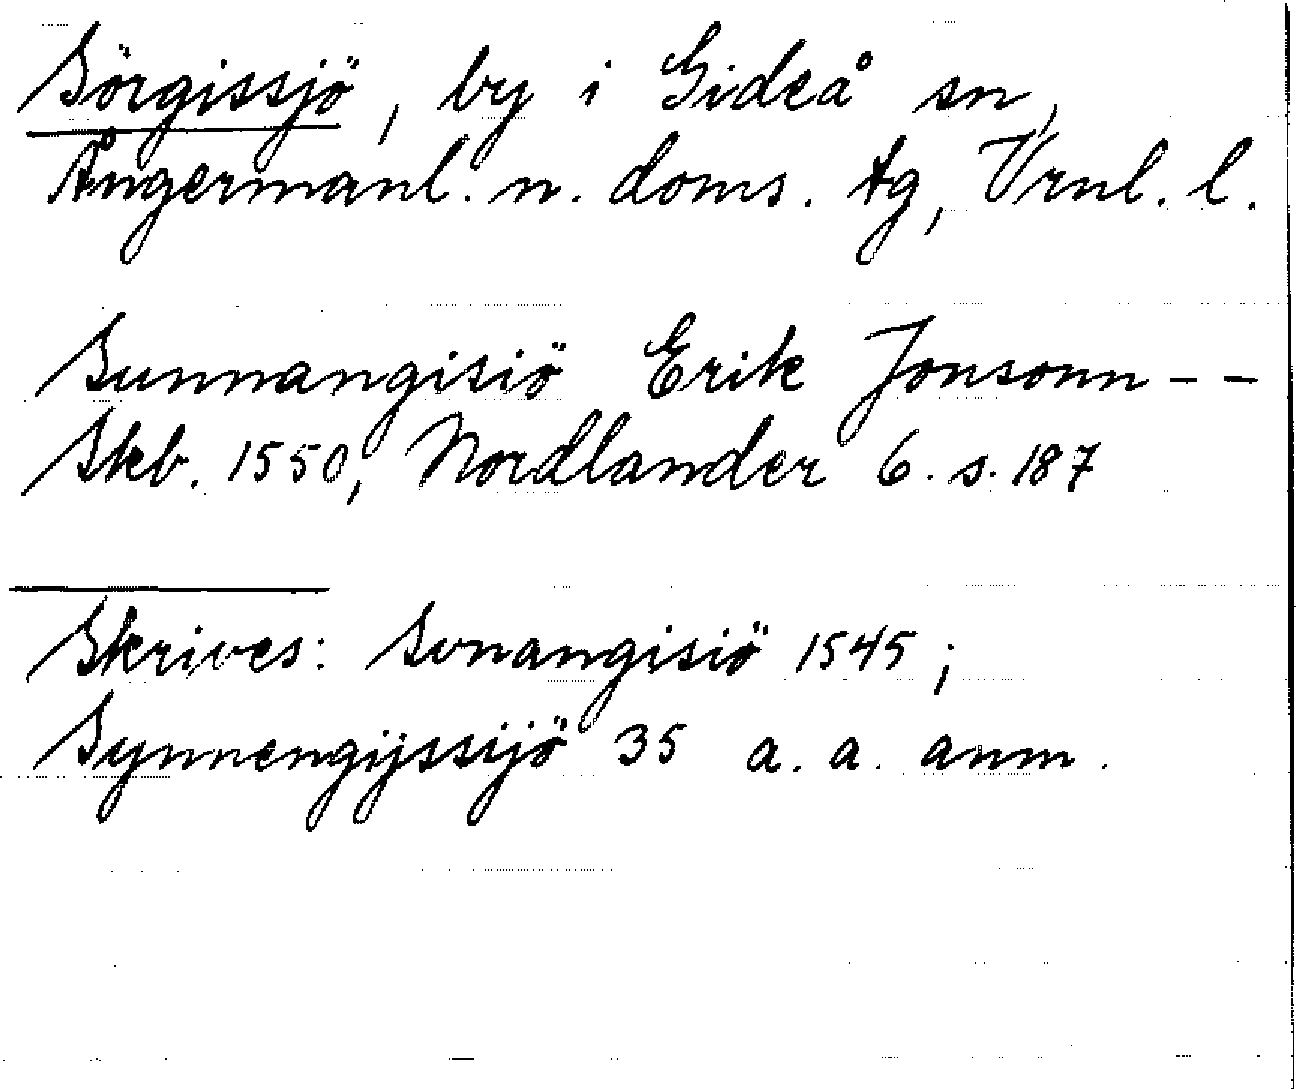 Sörgissjö, by i Gideå sn,
Ångermanl. n. doms. tg, Vrnl. l.
Sunnangisiö Erik Jonsonn - -
Skb. 1550, Nordlander 6. s. 187
Skrives: Svnangisiö 1545;
Synnengijssijö 35 a. a. anm.